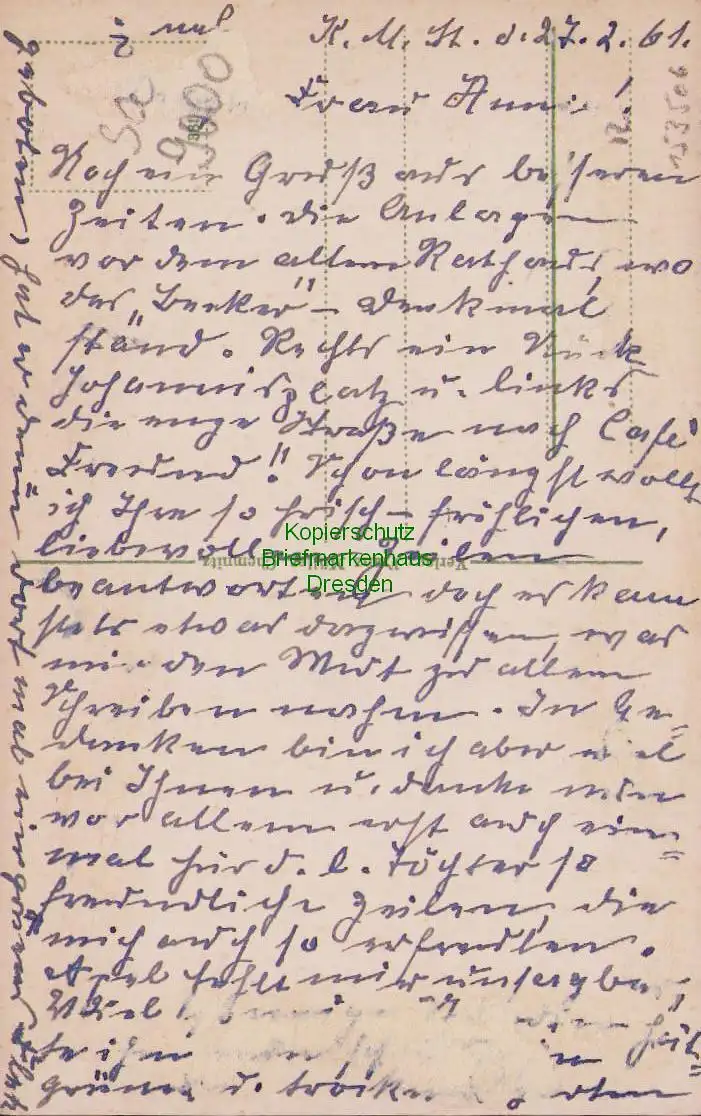 K. M. St. d. 27.2.61.
Frau Anni!
Noch ein Gruß aus besseren
Zeiten. die Anlagen
vor dem alten Rathaus, wo
das „Becker"- Denkmal
stand. Rechts ein Stück
Johannisplatz u. links
die enge Straße nach Café
Freund!! Schon längst wollt
ich Ihre so frisch-fröhlichen,
liebevollen Zeilen
beantworten, doch es kam
stets etwas dazwischen, was
mir den Mut zu allem
Schreiben nahm. In Ge-
danken bin ich aber viel
bei Ihnen u. danke nun
vor allem erst auch ein-
mal für d. l. Töchter so
freundliche Zeilen, die
mich auch so erfreuten.
fehlt mir
grünen u.
geboten, hat er denn dort mal
Sa
9000
153506
Kopierschutz
Briefmarkenhaus
Dresden